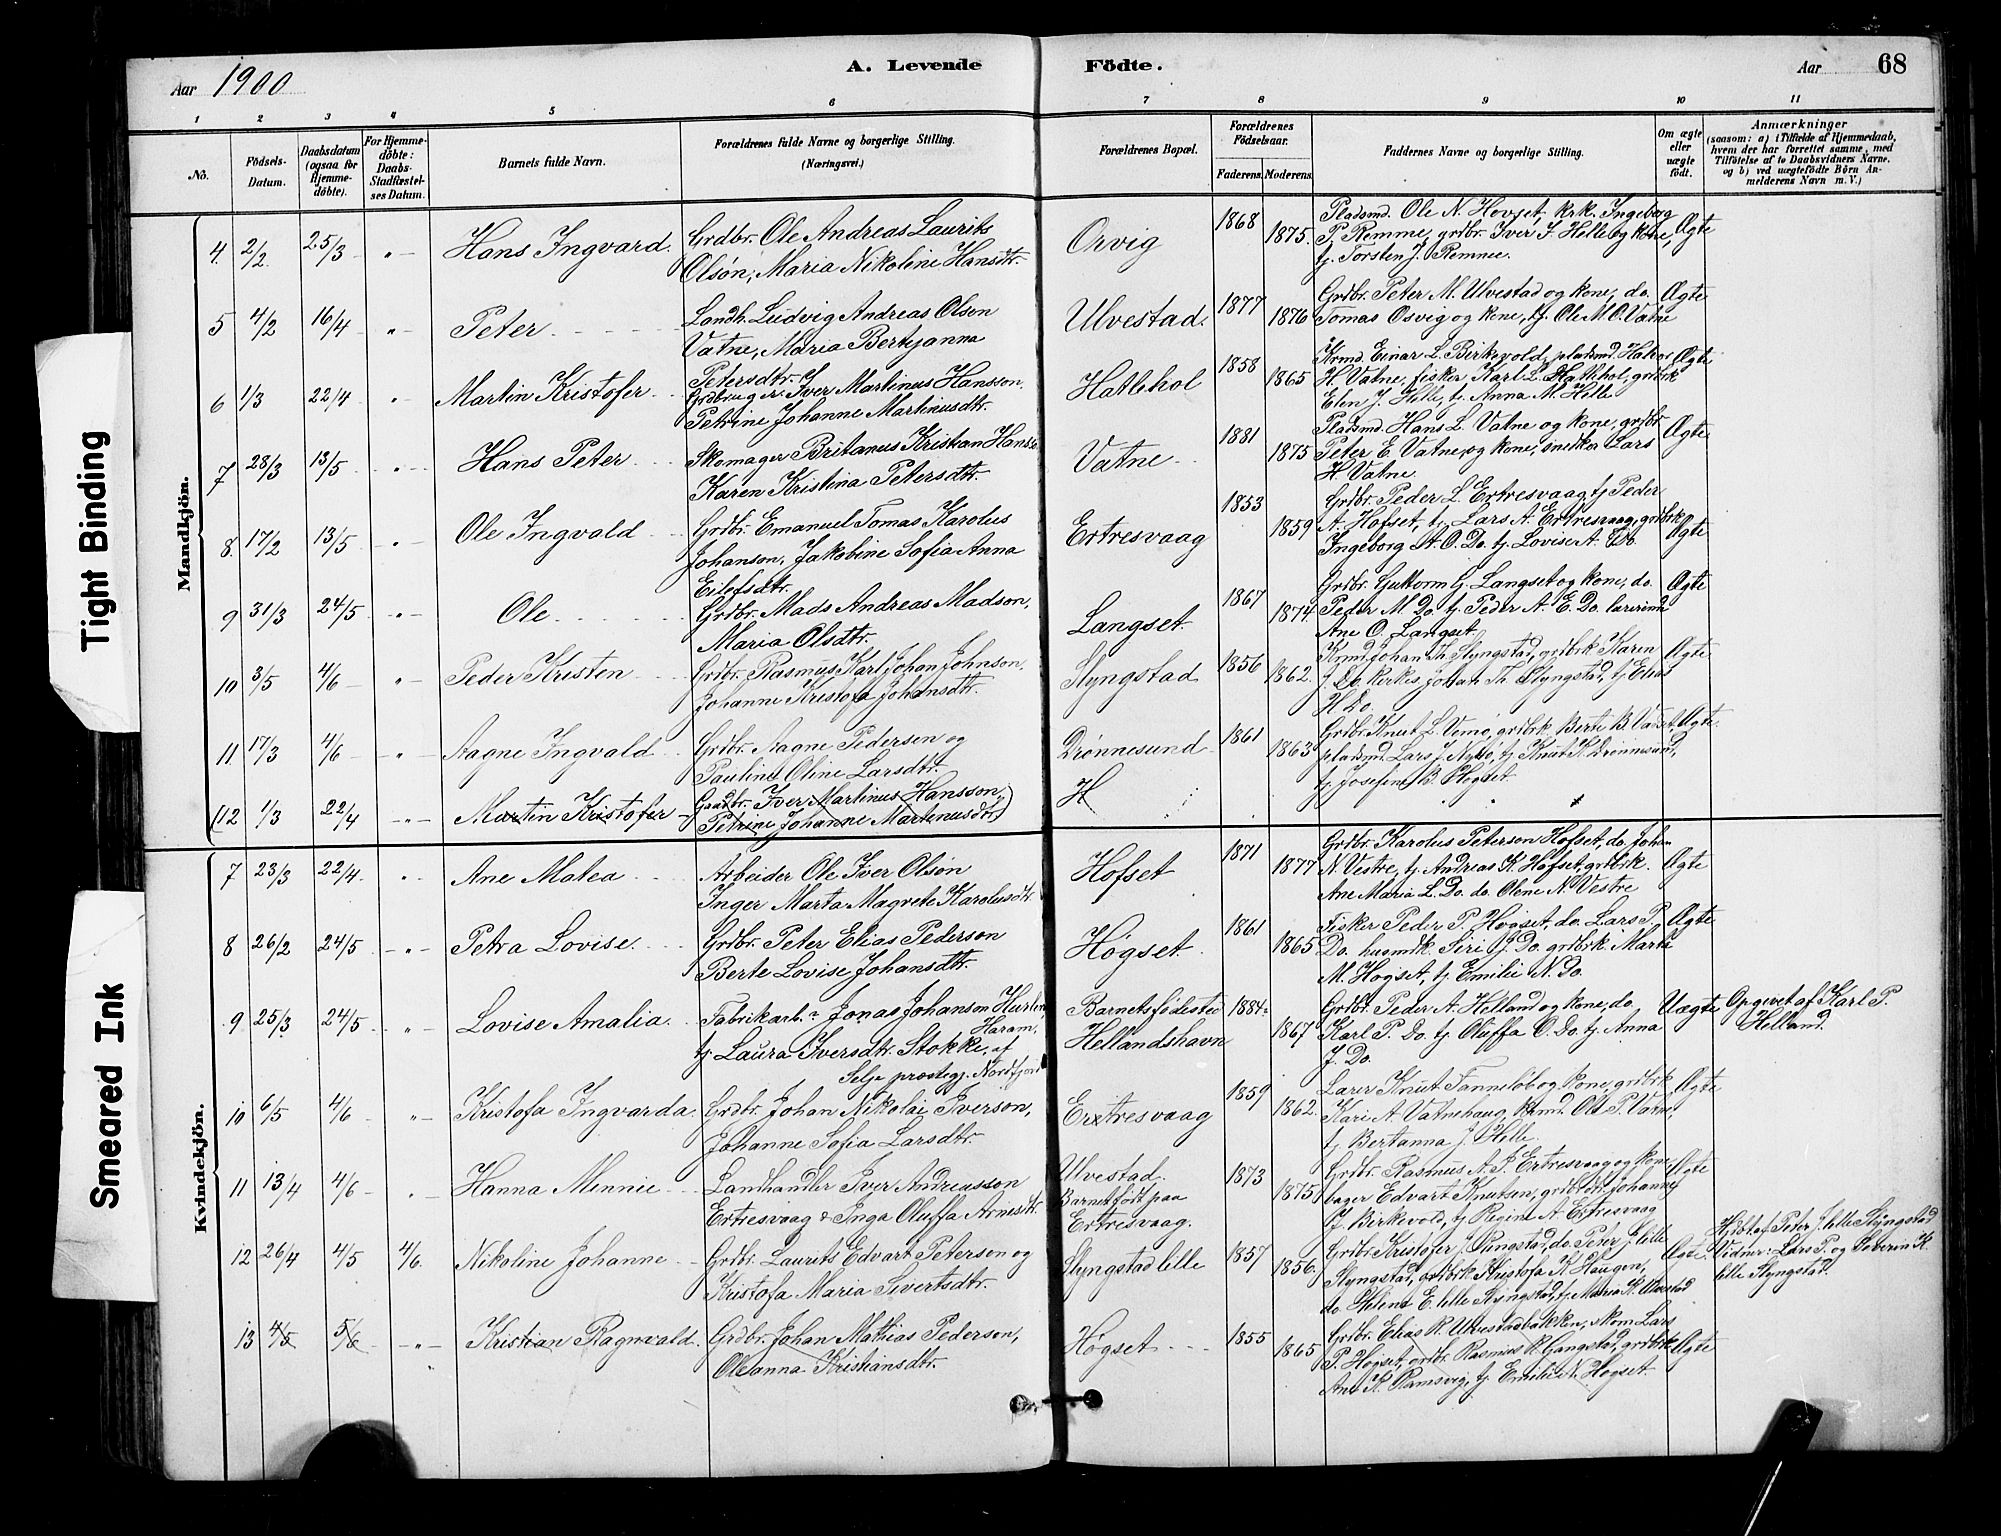 Aar 1900
A. Levende
Födte.
Aar 68
1 2 3 4 5 6 7 8 9 10 11
No.
Födsels-Datum.
Daabsdatum (ogsaa for Hjemme-döbte).
For Hjemme-döbte: Daabs-Stadfæstel-ses Datum.
Barnets fulde Navn.
Forældrenes fulde Navne og borgerlige Stilling. (Næringsvei.)
Forældrenes Bopæl.
Forældrenes Födselsaar.
Faderens. Moderens.
Faddernes Navne og borgerlige Stilling.
Om ægte eller uægte födt.
Anmærkninger
(saasom: a) i Tilfælde af Hjemmedaab, hvem der har forrettet samme, med Tilföielse af to Daabsvidners Navne. og b) ved uægtefödte Börn An-melderens Navn m. V.)
Mandkjön.
4. 2/2 25/3 -"- Hans Ingvard. Grdbr. Ole Andreas Laurits
Olsøn, Maria Nikoline Hansdtr.
Orvig 1868 1875.
Pladsmd. Ole N. Hovset, krk. Ingeborg
P. Remme, grdbr. Iver S. Helle og kone,
tj. Torsten J. Remme.
Ægte
5 4/2 16/4 " Peter Landh. Ludvig Andreas Olson
Vatne, Maria Bertjanna
Petersdtr.
Ulvestad. 1877 1876
Grdbr. Peter M. Ulvestad og kone, do.
Tomas Osvig og kone, tj. Ole M. O. Vatne
Ægte
6 1/3 22/4 " Martin Kristofer Grdbruger Iver Martinus Hansson,
Petrine Johanne Martinusdtr.
Hatlehol 1858 1865
Krmd. Einar L. Birkevold, pladsmd. Halvor
H. Vatne, fisker Karl L. Hatlehol, grdbrk
Elen J. Helle, tj. Anna M. Helle
Ægte
7 28/3 13/5 -"- Hans Peter Skomager Britanus Kristian Hans
Karen Kristina Petersdtr.
Vatne 1881 1875
Pladsmd. Hans L. Vatne og kone, grdbr
Peter E. Vatne og kone, snedker Lars
H. Vatne
Ægte
8. 17/2 13/5 -"- Ole Ingvald Grdbr. Emanuel Tomas Karolus
Johanson, Jakobine Sofia Anna
Eilefsdtr.
Ertresvaag 1853 1859
Grdbr. Peder L. Ertresvaag tj Peder
A. Hofset, tj. Lars A. Ertresvaag, grdbrk
Ingeborg A. O. Do. tj. Lovise A. Do.
Ægte
9 31/3 24/5 -"- Ole Grdbr. Mads Andreas Madson,
Maria Olsdtr.
Langset 1867 1874.
Grdbr. Guttorm G. Langset og kone, do.
Peder M. Do. tj. Peder A. E. Do.
Ane O. Langset.
Ægte
10 3/5 4/6 -"- Peder Kristen Grdbr. Rasmus Karl Johan Johnson,
Johanne Kristofa Johansdtr.
Slyngstad 1856 1862.
Krmd Johan Th. Slyngstad, grdbrk Karen
J. Do. kirkes. Johan Th. Slyngstad, tj Elias
H. Do.
Ægte
11 17/3 4/6 -"- Aagne Ingvald Grdbr. Aagne Pedersen og
Pauline Oline Larsdtr.
Drønnesund 1861 1863
Grdbr. Knut L. Vemø, grdbrk Berte B. Vadset,
pladsmd. Lars J. Nykø, tj Knut K. Drønnesund,
tj. Josefine B. Hogset.
Ægte
(12 1/3 22/4 -"- Martin Kristofer Gaardbr. Iver Martinus Hansson,
Petrine Johanne Martinusdtr)
H
Kvindekjön.
7 23/3 22/4. -"- Ane Matea Arbeider Ole Iver Olson
Inger Marta Magrete Karolusdtr.
Hofset 1871 1877
Grdbr. Karolus Peterson Hofset, do. Johan
N. Vestre, tj. Andreas K. Hofset, grdbrk.
Ane Maria L. Do. do. Olene N. Vestre
Ægte
8 26/2 24/5 -"- Petra Lovise. Grdbr. Peter Elias Pederson
Berte Lovise Johansdtr.
Høgset. 1861 1865
Fisker Peder P. Hogset, do. Lars P.
Do. husmdk. Siri J. Do. grdbrk. Marta
M. Hogset, tj. Emilie N. Do.
Ægte
9 25/3 24/5 " Lovise Amalia. Fabrikarb. Jonas Johanson Hurlen
Haram,
tj Laura Iversdtr. Stokke, af
Selje prestegj. Nordfjord
Barnets fødested
Hellandshavn
1884 1867
Grdbr. Peder A. Helland og kone, do.
Karl P. Do. tj. Oluffa O. Do. tj. Anna
J. Do.
Uægte Opgivet af Karl P.
Helland.
10 6/5 4/6 " Kristofa Ingvarda Grdbr. Johan Nikolai Iverson,
Johanne Sofia Larsdtr.
Ertresvaag 1859 1862.
Lærer Knut Tanneløb og kone, grdbrk
Kari A. Vatnehaug, krmd. Ole P. Vatne,
tj Bertanna J. Helle.
Ægte
11 13/4 4/6 -"- Hanna Minnie Landhandler Iver Andreasson
Ertresvaag & Inga Oluffa Arnesdtr
Ulvestad.
Barnet født paa
Ertresvaag.
1873 1875
Grdbr. Rasmus A. P. Ertresvaag og kone
bager Edvart Knutsen, grdbrdtr. Johanne
J. Birkevold, tj Regine A. Ertresvaag
Ægte
12 26/4 4/5 4/6. Nikoline Johanne Grdbr. Laurits Edvart Peterson og
Kristofa Maria Sivertsdtr.
Slyngstad lille 1857 1856.
Grdbr. Kristofer J. Pungstad, do. Peter J. lille
Slyngstad, grdbrk Kristofa K. Haugen,
do. Helene E. lille Slyngstad, tj. Maria K. Ulvestad
Ægte. Hjdbt af Peter J. lille Slyngstad
Vidner: Lars P. og Severin K.
lille Slyngstad.
13 4/5 5/6 -"- Kristian Ragnvald. Grdbr. Johan Mathias Pederson,
Oleanna Kristiansdtr.
Høgset 1855 1865
Grdbr. Elias R. Ulvestadbakken, skom Lars
P. Hogset, grdbr. Rasmus R. Gangstad, grdbrk
Ane K. Ramsvig, tj. Emilie N. Hogset.
Ægte
Tight Binding
Smeared Ink